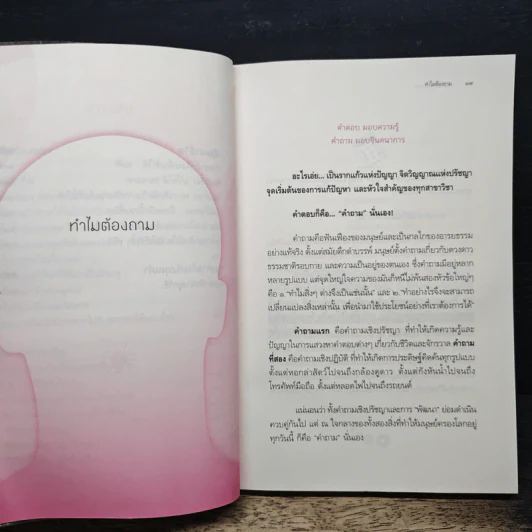 ทำไมต้องถาม
ทำไมต้องถาม
คำตอบ มอบความรู้
คำถาม มอบจินตนาการ
อะไรเอ่ย... เป็นรากแก้วแห่งปัญญา จิตวิญญาณแห่งปรัชญา
จุดเริ่มต้นของการแก้ปัญหา และหัวใจสำคัญของทุกสาขาวิชา
คำตอบก็คือ... “คำถาม” นั่นเอง!
คำถามคือฟันเฟืองของมนุษย์และเป็นกลไกของอารยธรรม
อย่างแท้จริง ตั้งแต่สมัยดึกดำบรรพ์ มนุษย์ตั้งคำถามเกี่ยวกับดวงดาว
ธรรมชาติรอบกาย และความเป็นอยู่ของตนเอง ซึ่งคำถามมีอยู่หลาก
หลายรูปแบบ แต่จุดใหญ่ใจความของมันก็หนีไม่พ้นสองหัวข้อใหญ่ๆ
คือ ๑. “ทำไมสิ่งๆ ต่างจึงเป็นเช่นนั้น” และ ๒. “ทำอย่างไรจึงจะสามารถ
เปลี่ยนแปลงสิ่งเหล่านั้น เพื่อนำมาใช้ประโยชน์อย่างที่เราต้องการได้”
คำถามแรก คือคำถามเชิงปรัชญา ที่ทำให้เกิดความรู้และ
ปัญญาในการแสวงหาคำตอบต่างๆ เกี่ยวกับชีวิตและจักรวาล คำถาม
ที่สอง คือคำถามเชิงปฏิบัติ ที่ทำให้เกิดการประดิษฐ์คิดค้นทุกรูปแบบ
ตั้งแต่หอกล่าสัตว์ไปจนถึงกล้องดูดาว ตั้งแต่กังหันน้ำไปจนถึง
โทรศัพท์มือถือ ตั้งแต่หลอดไฟไปจนถึงรถยนต์
แน่นอนว่า ทั้งคำถามเชิงปรัชญาและการ “พัฒนา” ย่อมดำเนิน
ควบคู่กันไป แต่ ณ ใจกลางของทั้งสองสิ่งที่ทำให้มนุษย์ครองโลกอยู่
ทุกวันนี้ ก็คือ “คำถาม” นั่นเอง